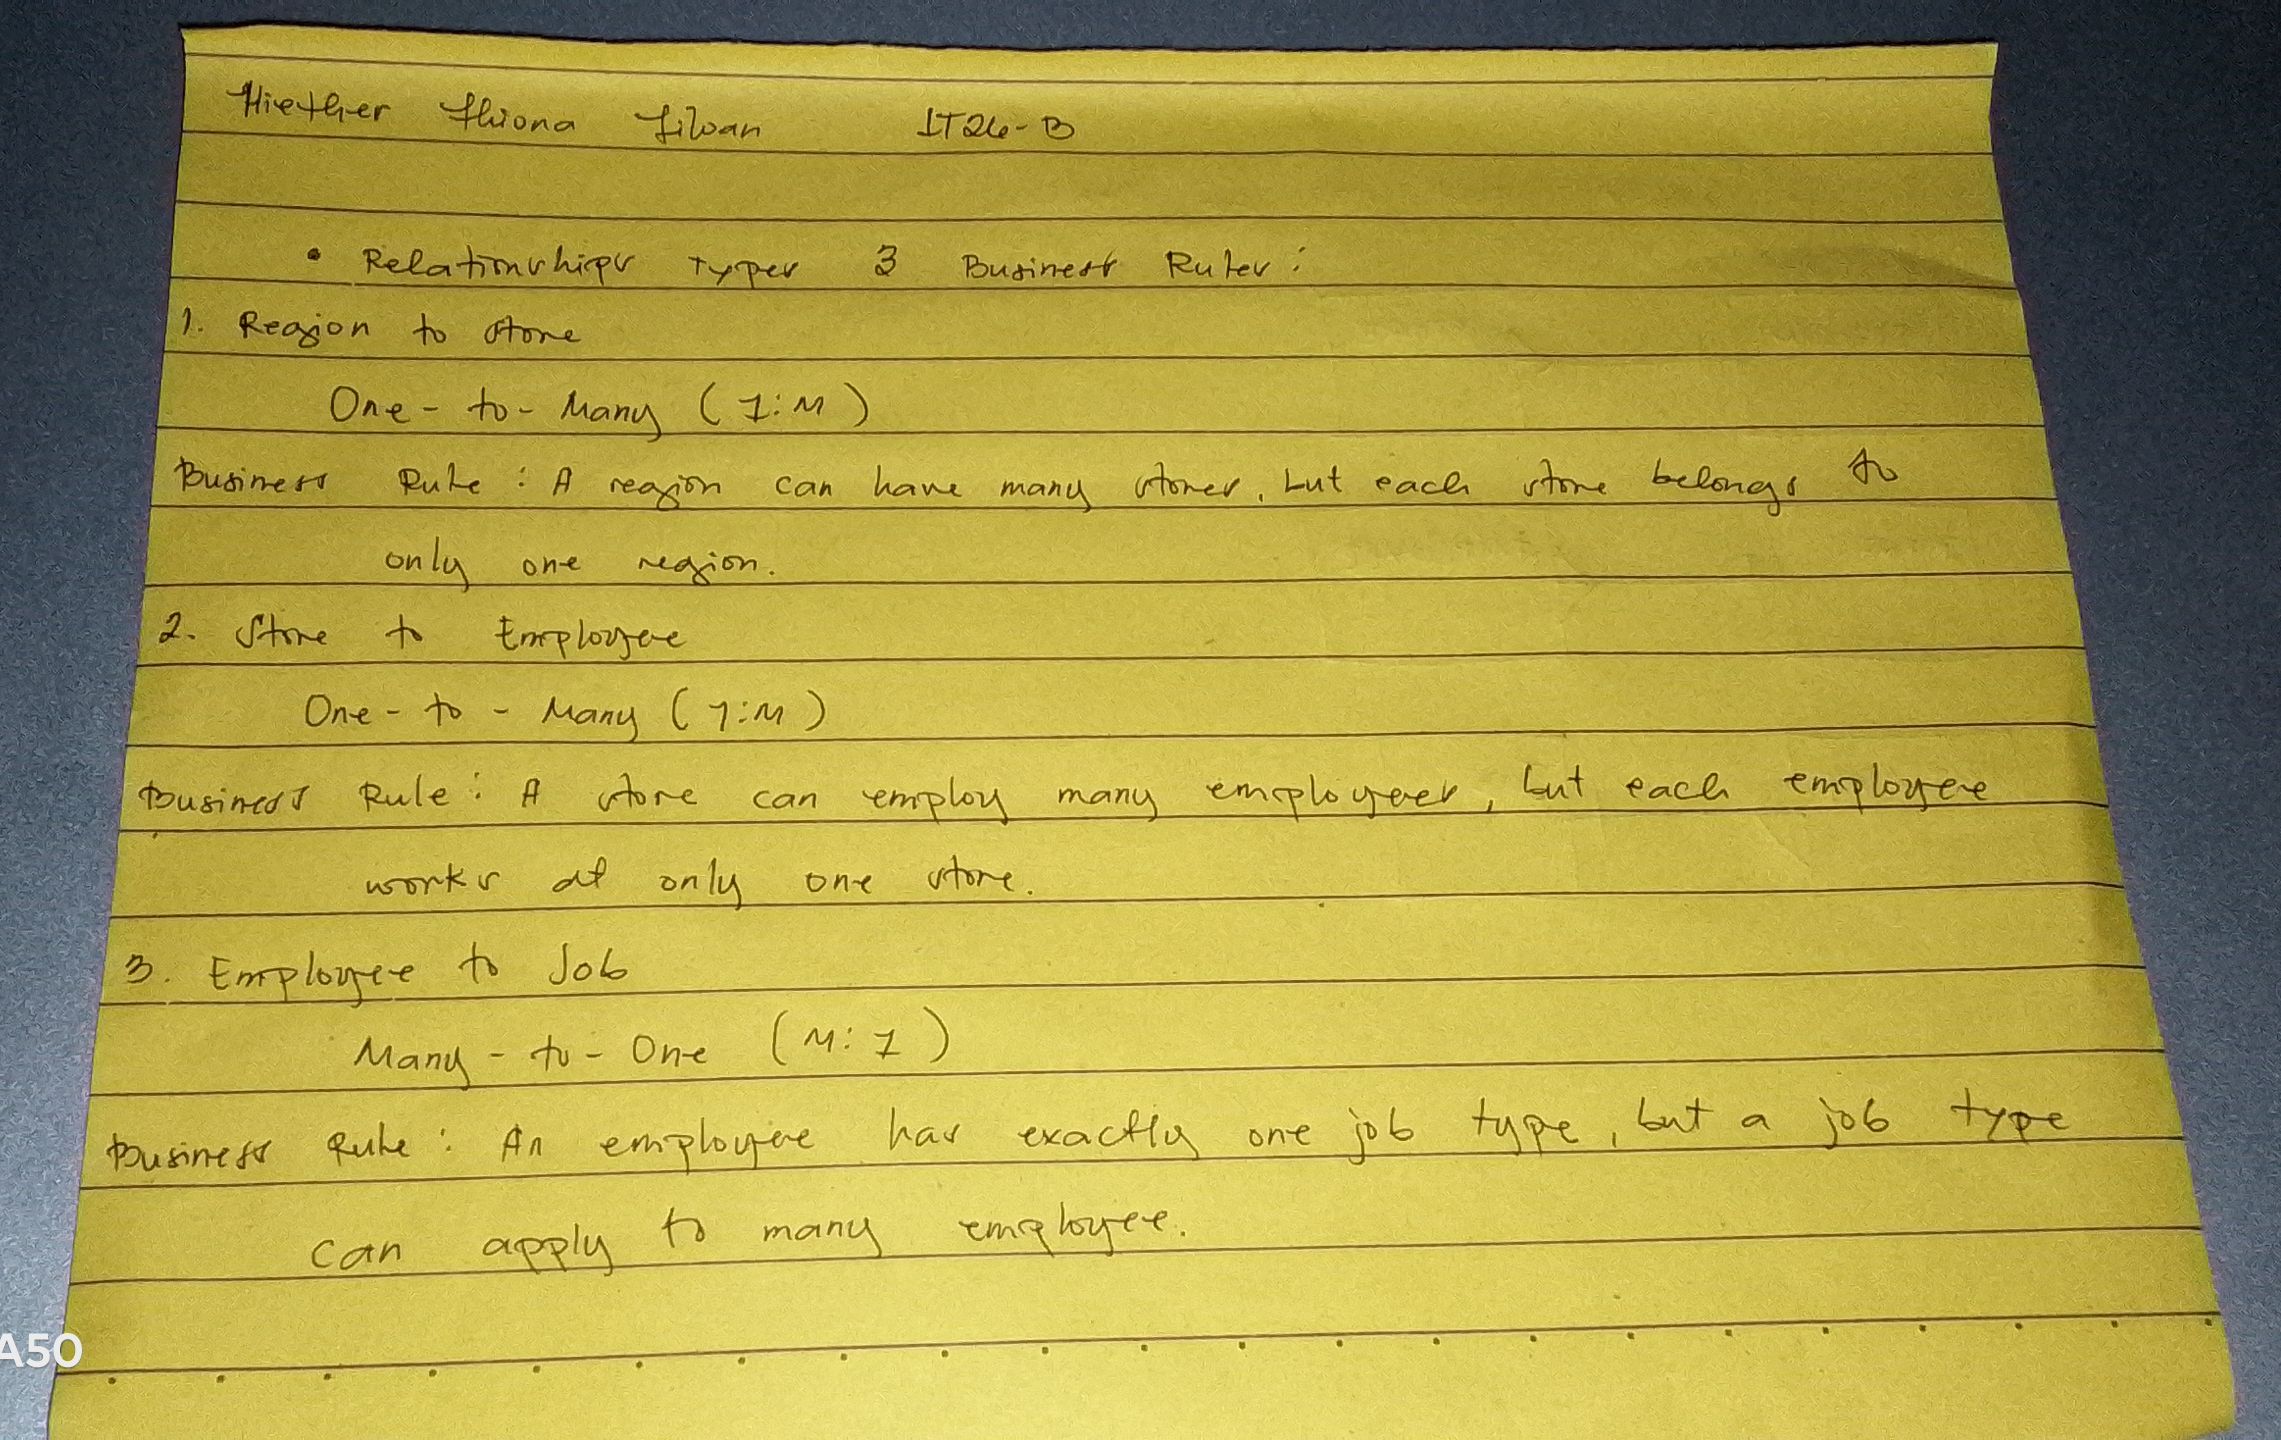 Hiether Shiona Silvan IT26-B
• Relationships Types 3 Business Rules:
1. Region to store
One-to-Many (1:M)
Business Rule: A region can have many stores, but each store belongs to
only one region.
2. Store to Employee
One-to-Many (1:M)
Business Rule: A store can employ many employees, but each employee
works at only one store.
3. Employee to Job
Many-to-One (M:1)
Business Rule: An employee has exactly one job type, but a job type
can apply to many employee.
A50